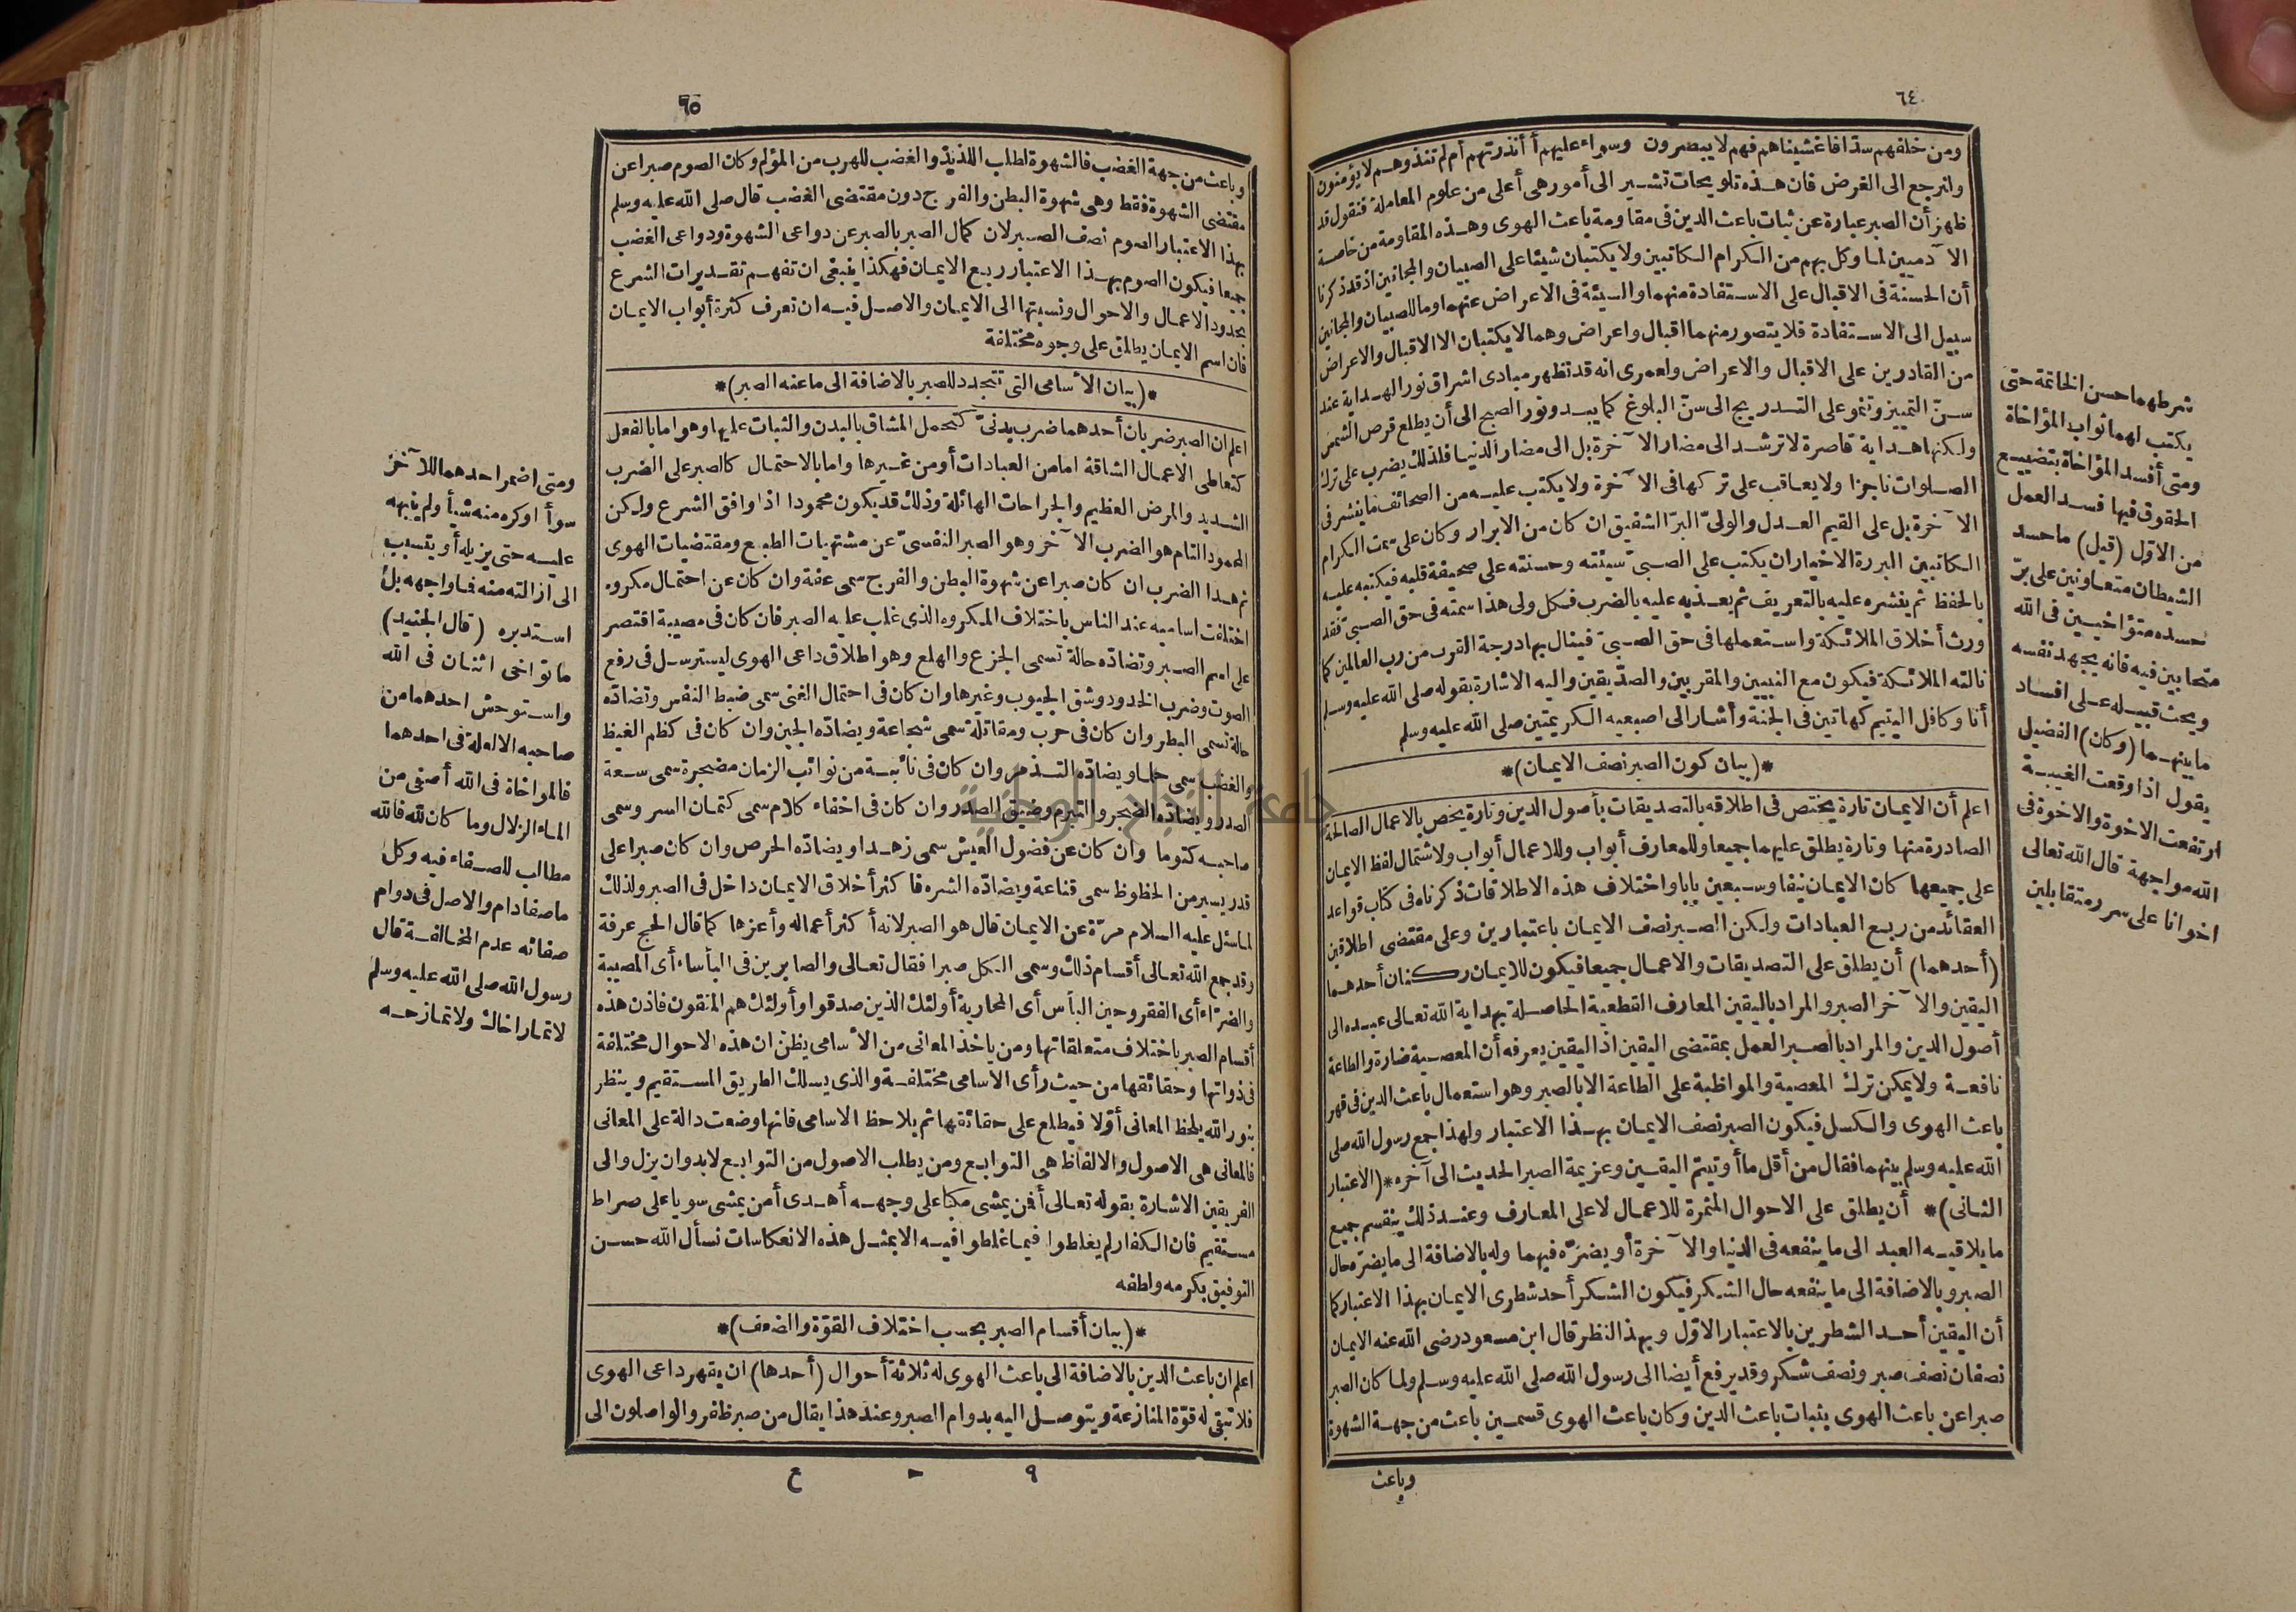 ٦٤
ومن خلفهم سدّا فاغشيناهم فهم لايبصرون وسواء عليهم أأنذرتهم أم لم تنذرهم لايؤمنون
ولنرجع الى الغرض فان هذه تلويحات تشير الى أمور هى أعلى من علوم المعاملة فنقول قد
ظهر أن الصبر عبارة عن ثبات باعث الدين فى مقاومة باعث الهوى وهذه المقاومة من خاصة
الآدميين لما وكل بهم من الكرام الكاتبين ولايكتبان شيئا على الصبيان والمجانين اذ قد ذكرنا
أن الحسنة فى الاقبال على الاستفادة منهما والسيئة فى الاعراض عنهما وما للصبيان والمجانين
سبيل الى الاستفادة فلا يتصور منهما اقبال واعراض وهما لايكتبان الا الاقبال والاعراض
من القادرين على الاقبال والاعراض ولعمرى انه قد تظهر مبادى اشراق نور الهداية عند
سنّ التمييز وتنمو على التدريج الى سنّ البلوغ كما يبدو نور الصبح الى أن يطلع قرص الشمس
ولكنها هداية قاصرة لاترشد الى مضار الآخرة بل الى مضار الدنيا فلذلك يضرب على ترك
الصلوات ناجزا ولايعاقب على تركها فى الآخرة ولايكتب عليه من الصحائف ماينشر فى
الآخرة بل على القيم العدل والولىّ البرّ الشفيق ان كان من الابرار وكان على سمت الكرام
الكاتبين البررة الاخيار ان يكتب على الصبىّ سيئته وحسنته على صحيفة قلبه فيكتبه عليه
بالحفظ ثم ينشره عليه بالتعريف ثم يعذبه عليه بالضرب فكل ولى هذا سمته فى حق الصبىّ فقد
ورث أخلاق الملائكة واستعملها فى حق الصبىّ فينال بها درجة القرب من رب العالمين كما
نالته الملائكة فيكون مع النبيين والمقربين والصدّيقين واليه الاشارة بقوله صلى الله عليه وسلم
أنا وكافل اليتيم كهاتين فى الجنة وأشار الى اصبعيه الكريمتين صلى الله عليه وسلم
*(بيان كون الصبر نصف الايمان)*
اعلم أن الايمان تارة يختص فى اطلاقه بالتصديقات بأصول الدين وتارة يخص بالاعمال الصالحة
الصادرة منها وتارة يطلق عليهما جميعا وللمعارف أبواب وللاعمال أبواب ولاشتمال لفظ الايمان
على جميعها كان الايمان نيفا وسبعين بابا واختلاف هذه الاطلاقات ذكرناه فى كتاب قواعد
العقائد من ربع العبادات ولكن الصبر نصف الايمان باعتبارين وعلى مقتضى اطلاقين
(أحدهما) أن يطلق على التصديقات والاعمال جميعا فيكون للايمان ركنان أحدهما
اليقين والآخر الصبر والمراد باليقين المعارف القطعية الحاصلة بهداية الله تعالى عبده الى
أصول الدين والمراد بالصبر العمل بمقتضى اليقين اذ اليقين يعرفه أن المعصية ضارة والطاعة
نافعة ولايمكن ترك المعصية والمواظبة على الطاعة الا بالصبر وهو استعمال باعث الدين فى قهر
باعث الهوى والكسل فيكون الصبر نصف الايمان بهذا الاعتبار ولهذا جمع رسول الله صلى
الله عليه وسلم بينهما فقال من أقل ماأوتيتم اليقين وعزيمة الصبر الحديث الى آخره *(الاعتبار
الثانى)* أن يطلق على الاحوال المثمرة للاعمال لا على المعارف وعند ذلك ينقسم جميع
مايلاقيه العبد الى ماينفعه فى الدنيا والآخرة أو يضرّه فيهما وله بالاضافة الى مايضرّه حال
الصبر وبالاضافة الى ماينفعه حال الشكر فيكون الشكر أحد شطرى الايمان بهذا الاعتبار كما
أن اليقين أحد الشطرين بالاعتبار الاوّل وبهذا النظر قال ابن مسعود رضى الله عنه الايمان
نصفان نصف صبر ونصف شكر وقد يرفع أيضا الى رسول الله صلى الله عليه وسلم ولما كان الصبر
صبرا عن باعث الهوى بثبات باعث الدين وكان باعث الهوى قسمين باعث من جهة الشهوة
وباعث
شرطهما حسن الخاتمة حتى
يكتب لهما ثواب المؤاخاة
ومتى أفسد المؤاخاة بتضييع
الحقوق فيها فسد العمل
من الاوّل (قيل) ماحسد
الشيطان متعاونين على برّ
حسده متؤاخيين فى الله
متحابين فيه فانه يجهد نفسه
ويحث قبيله على افساد
مابينهما (وكان) الفضيل
يقول اذا وقعت الغيبة
ارتفعت الاخوة والاخوة فى
الله مواجهة قال الله تعالى
اخوانا على سرر متقابلين
٦٥
وباعث من جهة الغضب فالشهوة لطلب اللذيذ والغضب للهرب من المؤلم وكان الصوم صبرا عن
مقتضى الشهوة فقط وهى شهوة البطن والفرج دون مقتضى الغضب قال صلى الله عليه وسلم
بهذا الاعتبار الصوم نصف الصبر لان كمال الصبر بالصبر عن دواعى الشهوة ودواعى الغضب
جميعا فيكون الصوم بهذا الاعتبار ربع الايمان فهكذا ينبغى ان تفهم تقديرات الشرع
بحدود الاعمال والاحوال ونسبتها الى الايمان والاصل فيه ان تعرف كثرة أبواب الايمان
فان اسم الايمان يطلق على وجوه مختلفة
*(بيان الأسامى التى تتجدد للصبر بالاضافة الى ماعنه الصبر)*
اعلم ان الصبر ضربان أحدهما ضرب بدنىّ كتحمل المشاق بالبدن والثبات عليها وهو اما بالفعل
كتعاطى الاعمال الشاقة اما من العبادات أو من غيرها واما بالاحتمال كالصبر على الضرب
الشديد والمرض العظيم والجراحات الهائلة وذلك قد يكون محمودا اذا وافق الشرع ولكن
المحمود التام هو الضرب الآخر وهو الصبر النفسىّ عن مشتهيات الطبع ومقتضيات الهوى
ثم هذا الضرب ان كان صبرا عن شهوة البطن والفرج سمى عفة وان كان عن احتمال مكروه
اختلفت اساميه عند الناس باختلاف المكروه الذى غلب عليه الصبر فان كان فى مصيبة اقتصر
على اسم الصبر وتضادّه حالة تسمى الجزع والهلع وهو اطلاق داعى الهوى ليسترسل فى رفع
الصوت وضرب الخدود وشق الجيوب وغيرها وان كان فى احتمال الغنى سمى ضبط النفس وتضادّه
حالة تسمى البطر وان كان فى حرب ومقاتلة سمى شجاعة ويضادّه الجبن وان كان فى كظم الغيظ
والغضب سمى حلما ويضادّه التذمر وان كان فى نائبة من نوائب الزمان مضجرة سمى سعة
الصدر ويضادّه الضجر والتبرم وضيق الصدر وان كان فى اخفاء كلام سمى كتمان السر وسمى
صاحبه كتوما وان كان عن فضول العيش سمى زهدا ويضادّه الحرص وان كان صبرا على
قدر يسير من الحظوظ سمى قناعة ويضادّه الشره فاكثر أخلاق الايمان داخل فى الصبر ولذلك
لما سئل عليه السلام مرّة عن الايمان قال هو الصبر لانه أكثر أعماله وأعزها كما قال الحج عرفة
وقد جمع الله تعالى أقسام ذلك وسمى الكل صبرا فقال تعالى والصابرين فى البأساء أى المصيبة
والضرّاء أى الفقر وحين البأس أى المحاربة أولئك الذين صدقوا وأولئك هم المتقون فاذن هذه
أقسام الصبر باختلاف متعلقاتها ومن ياخذ المعانى من الأسامى يظن ان هذه الاحوال مختلفة
فى ذواتها وحقائقها من حيث رأى الاسامى مختلفة والذى يسلك الطريق المستقيم وينظر
بنور الله يلحظ المعانى أوّلا فيطلع على حقائقها ثم يلاحظ الاسامى فانها وضعت دالة على المعانى
فالمعانى هى الاصول والالفاظ هى التوابع ومن يطلب الاصول من التوابع لابدوان يزل والى
الفريقين الاشارة بقوله تعالى أفمن يمشى مكبا على وجهه أهدى أمن يمشى سويا على صراط
مستقيم فان الكفار لم يغلطوا فيما غلطوا فيه الا بمثل هذه الانعكاسات نسأل الله حسن
التوفيق بكرمه ولطفه
*(بيان أقسام الصبر بحسب اختلاف القوّة والضعف)*
اعلم ان باعث الدين بالاضافة الى باعث الهوى له ثلاثة أحوال (أحدها) ان يقهر داعى الهوى
فلا تبقى له قوّة المنازعة ويتوصل اليه بدوام الصبر وعند هذا يقال من صبر ظفر والواصلون الى
٩ - ع
ومتى اضمر احدهما للآخر
سوأ أوكره منه شيأ ولم ينبهه
عليه حتى يزيله أو يتسبب
الى ازالته منه فماواجهه بل
استدبره (قال الجنيد)
ماتواخى اثنان فى الله
واستوحش احدهما من
صاحبه الا لعلة فى احدهما
فالمواخاة فى الله أصفى من
الماء الزلال وما كان لله فالله
مطالب للصفاء فيه وكل
ماصفا دام والاصل فى دوام
صفائه عدم المخالفة قال
رسول الله صلى الله عليه وسلم
لاتمار اخاك ولا تمازحه
جامعة النجاح الوطنية